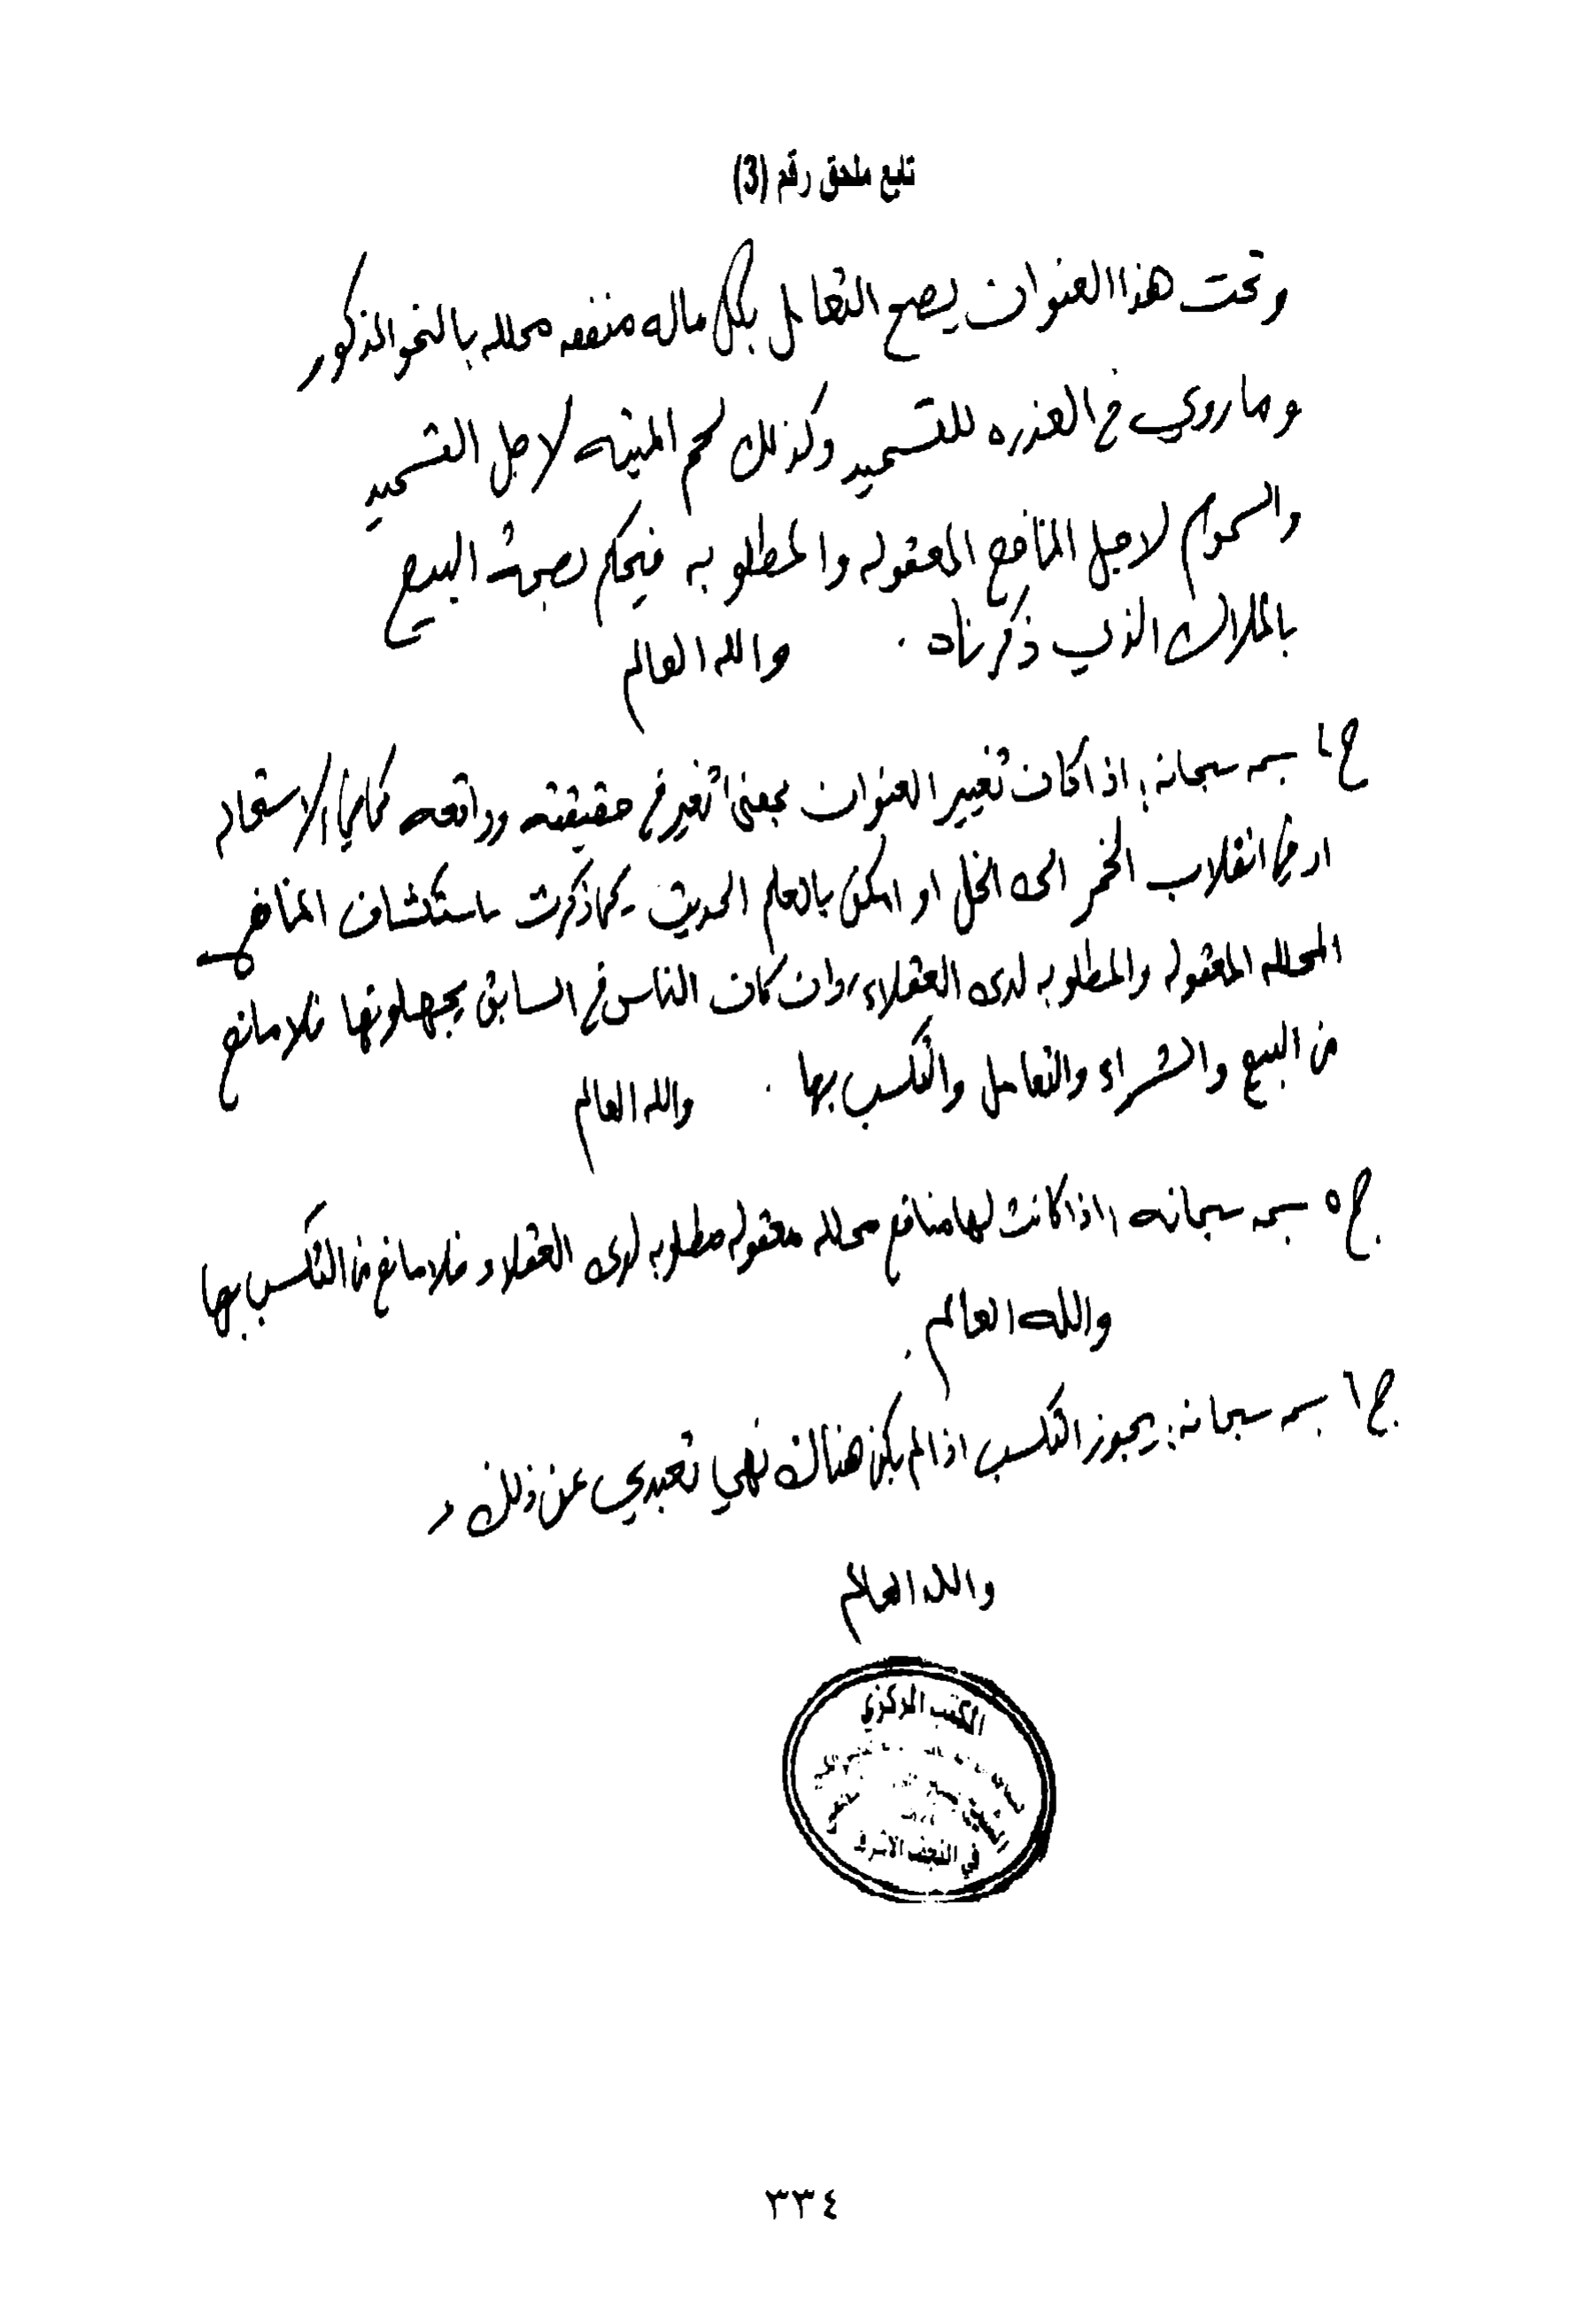 تابع ملحق رقم (3)
وتحت هذا العنوان يصح التعامل بكل ماله منفعه محلله بالنحو المذكور
وما روي في العذره للتسميد وكذلك لحم الميته لاجل التسميد
والسموم لاجل المنافع المعقوله والمطلوبه فيحكم بصحة البيع
بالملاك الذي ذكرناه . والله العالم
ج٤ بسمه سبحانه: اذا كان تغيير العنوان بمعنى تغير في حقيقته وواقعه كما في الاستحاله
او في انقلاب الخمر الى الخل او امكن بالعلم الحديث - كما ذكرت - استكشاف المنافع
المحلله المعقوله والمطلوبه لدى العقلاء، وان كان الناس في السابق يجهلونها فلا مانع
من البيع والشراء والتعامل والتكسب بها . والله العالم
ج٥ بسمه سبحانه: اذا كانت لها منافع محلله معقوله مطلوبه لدى العقلاء فلا مانع من التكسب بها
والله العالم.
ج٦ بسمه سبحانه: يجوز التكسب اذا لم يكن هناك نهي تعبدي عن ذلك ،
والله العالم
المكتب المركزي
في النجف الاشرف
٣٣٤